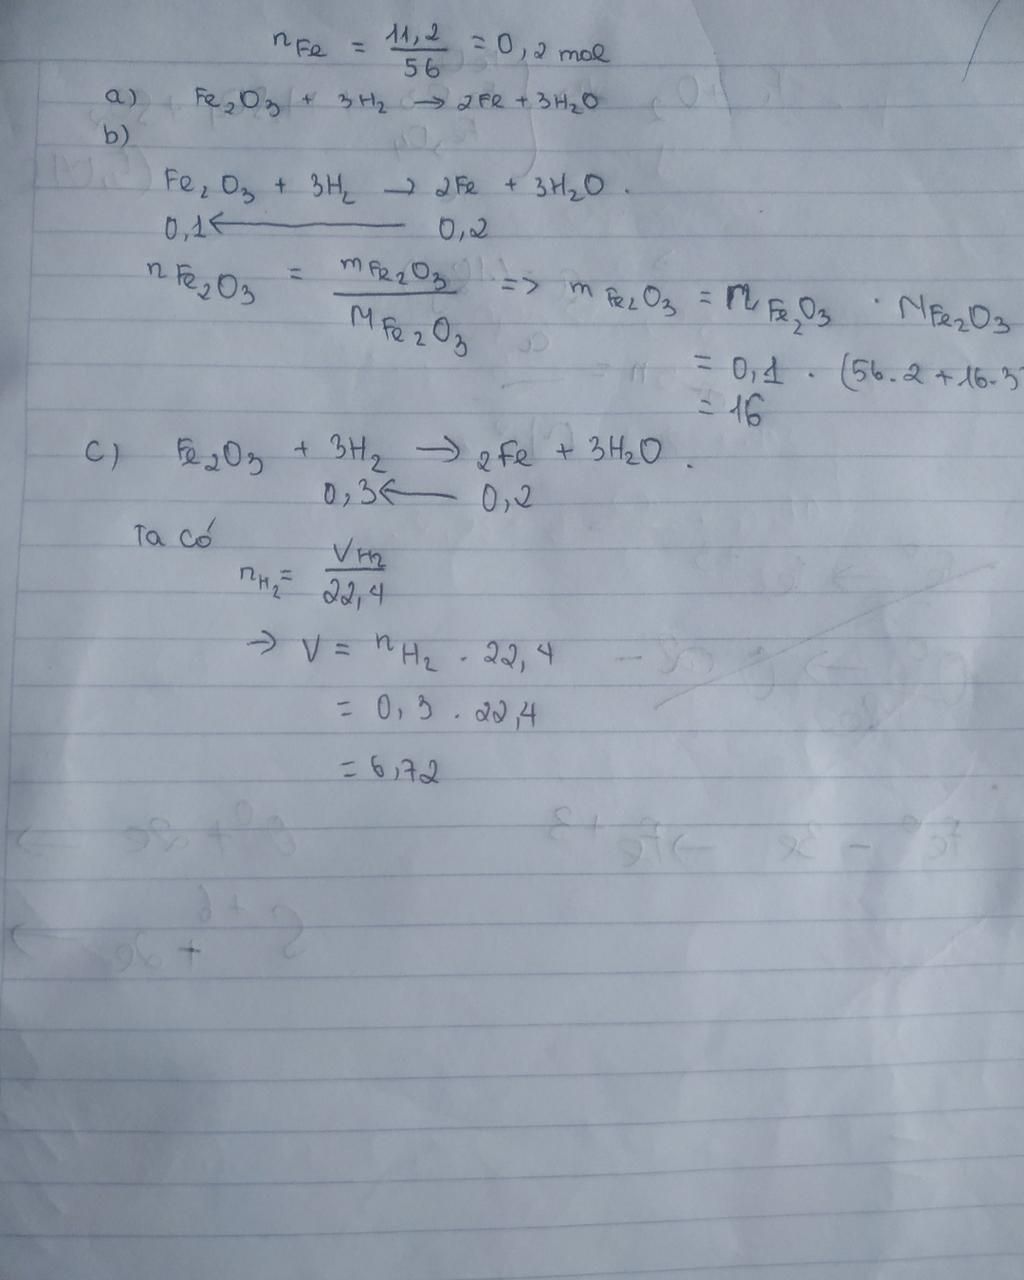 nFe = 11,2/56 = 0,2 mol
a) Fe₂O₃ + 3H₂ → 2Fe + 3H₂O
b)
Fe₂O₃ + 3H₂ → 2Fe + 3H₂O.
0,1 ← 0,2
nFe₂O₃ = mFe₂O₃/MFe₂O₃ => mFe₂O₃ = nFe₂O₃ . MFe₂O₃
= 0,1 . (56.2 + 16.3)
= 16
c) Fe₂O₃ + 3H₂ → 2Fe + 3H₂O.
0,3 ← 0,2
Ta có
nH₂ = VH₂/22,4
→ V = nH₂ . 22,4
= 0,3 . 22,4
= 6,72